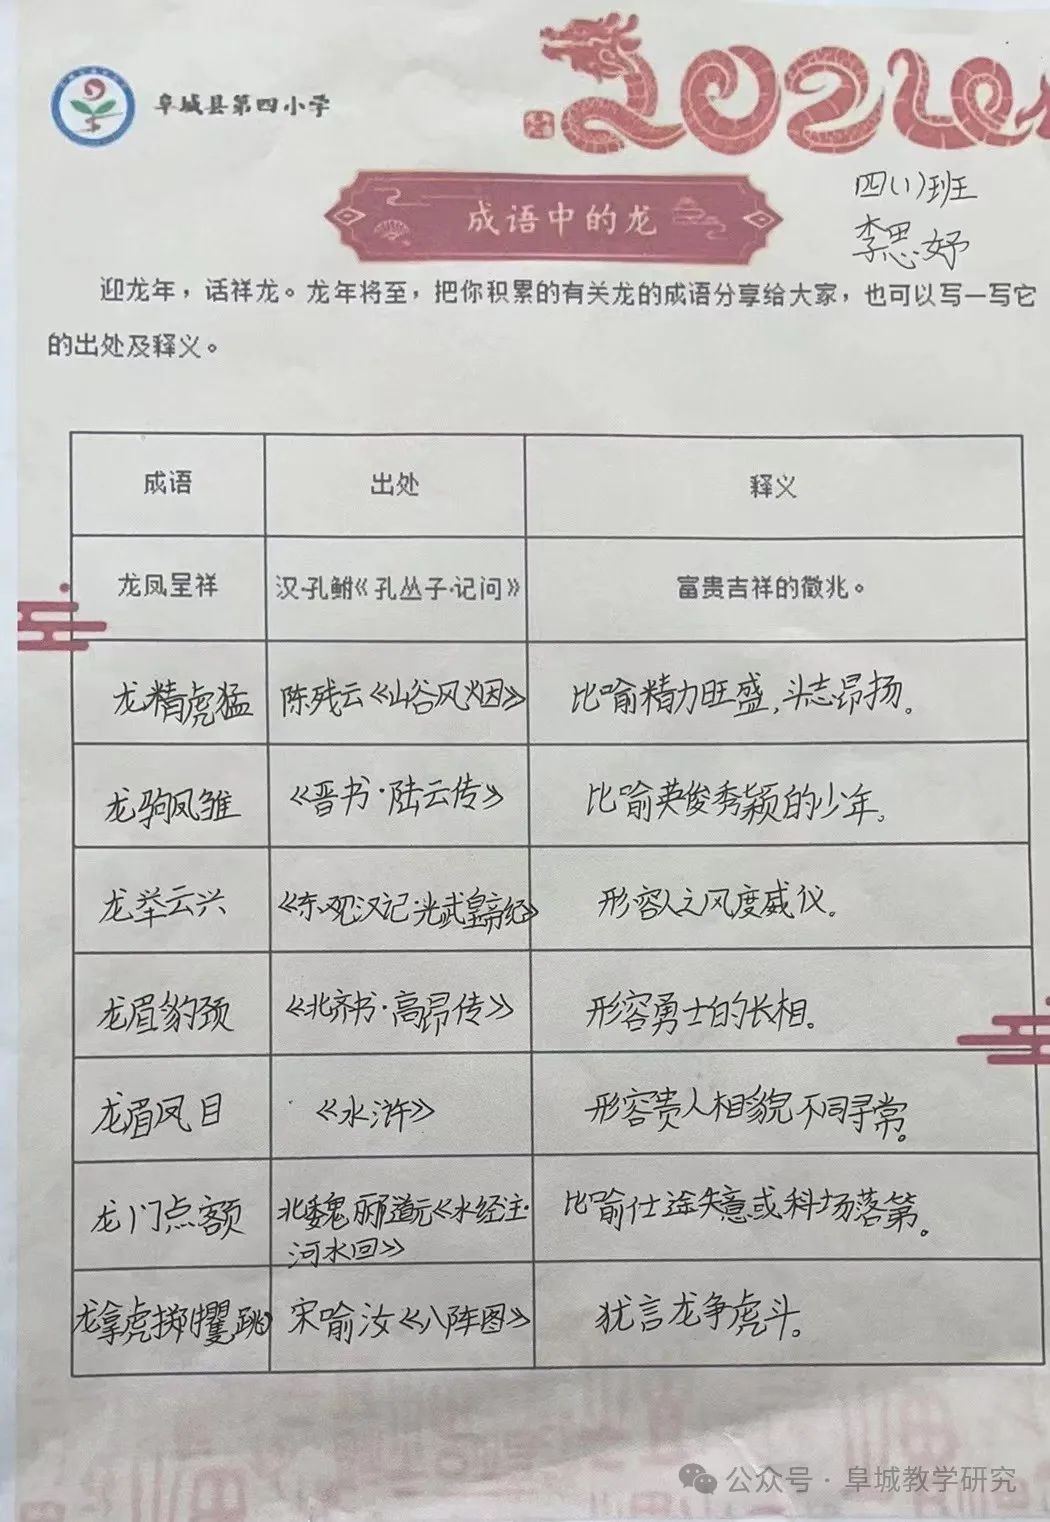 阜城县第四小学
2024
成语中的龙
四(1)班
李思妤
迎龙年，话祥龙。龙年将至，把你积累的有关龙的成语分享给大家，也可以写一写它
的出处及释义。
成语 出处 释义
龙凤呈祥 汉·孔鲋《孔丛子·记问》 富贵吉祥的徵兆。
龙精虎猛 陈残云《山谷风烟》 比喻精力旺盛,斗志昂扬。
龙驹凤雏 《晋书·陆云传》 比喻英俊秀颖的少年。
龙举云兴 《东观汉记·光武皇帝经》 形容人之风度威仪。
龙眉豹颈 《北齐书·高昂传》 形容勇士的长相。
龙眉凤目 《水浒》 形容贵人相貌不同寻常。
龙门点额 北魏郦道元《水经注·
河水回》 比喻仕途失意或科场落第。
龙拿虎掷(攫,跳) 宋喻汝《八阵图》 犹言龙争虎斗。
公众号·阜城教学研究